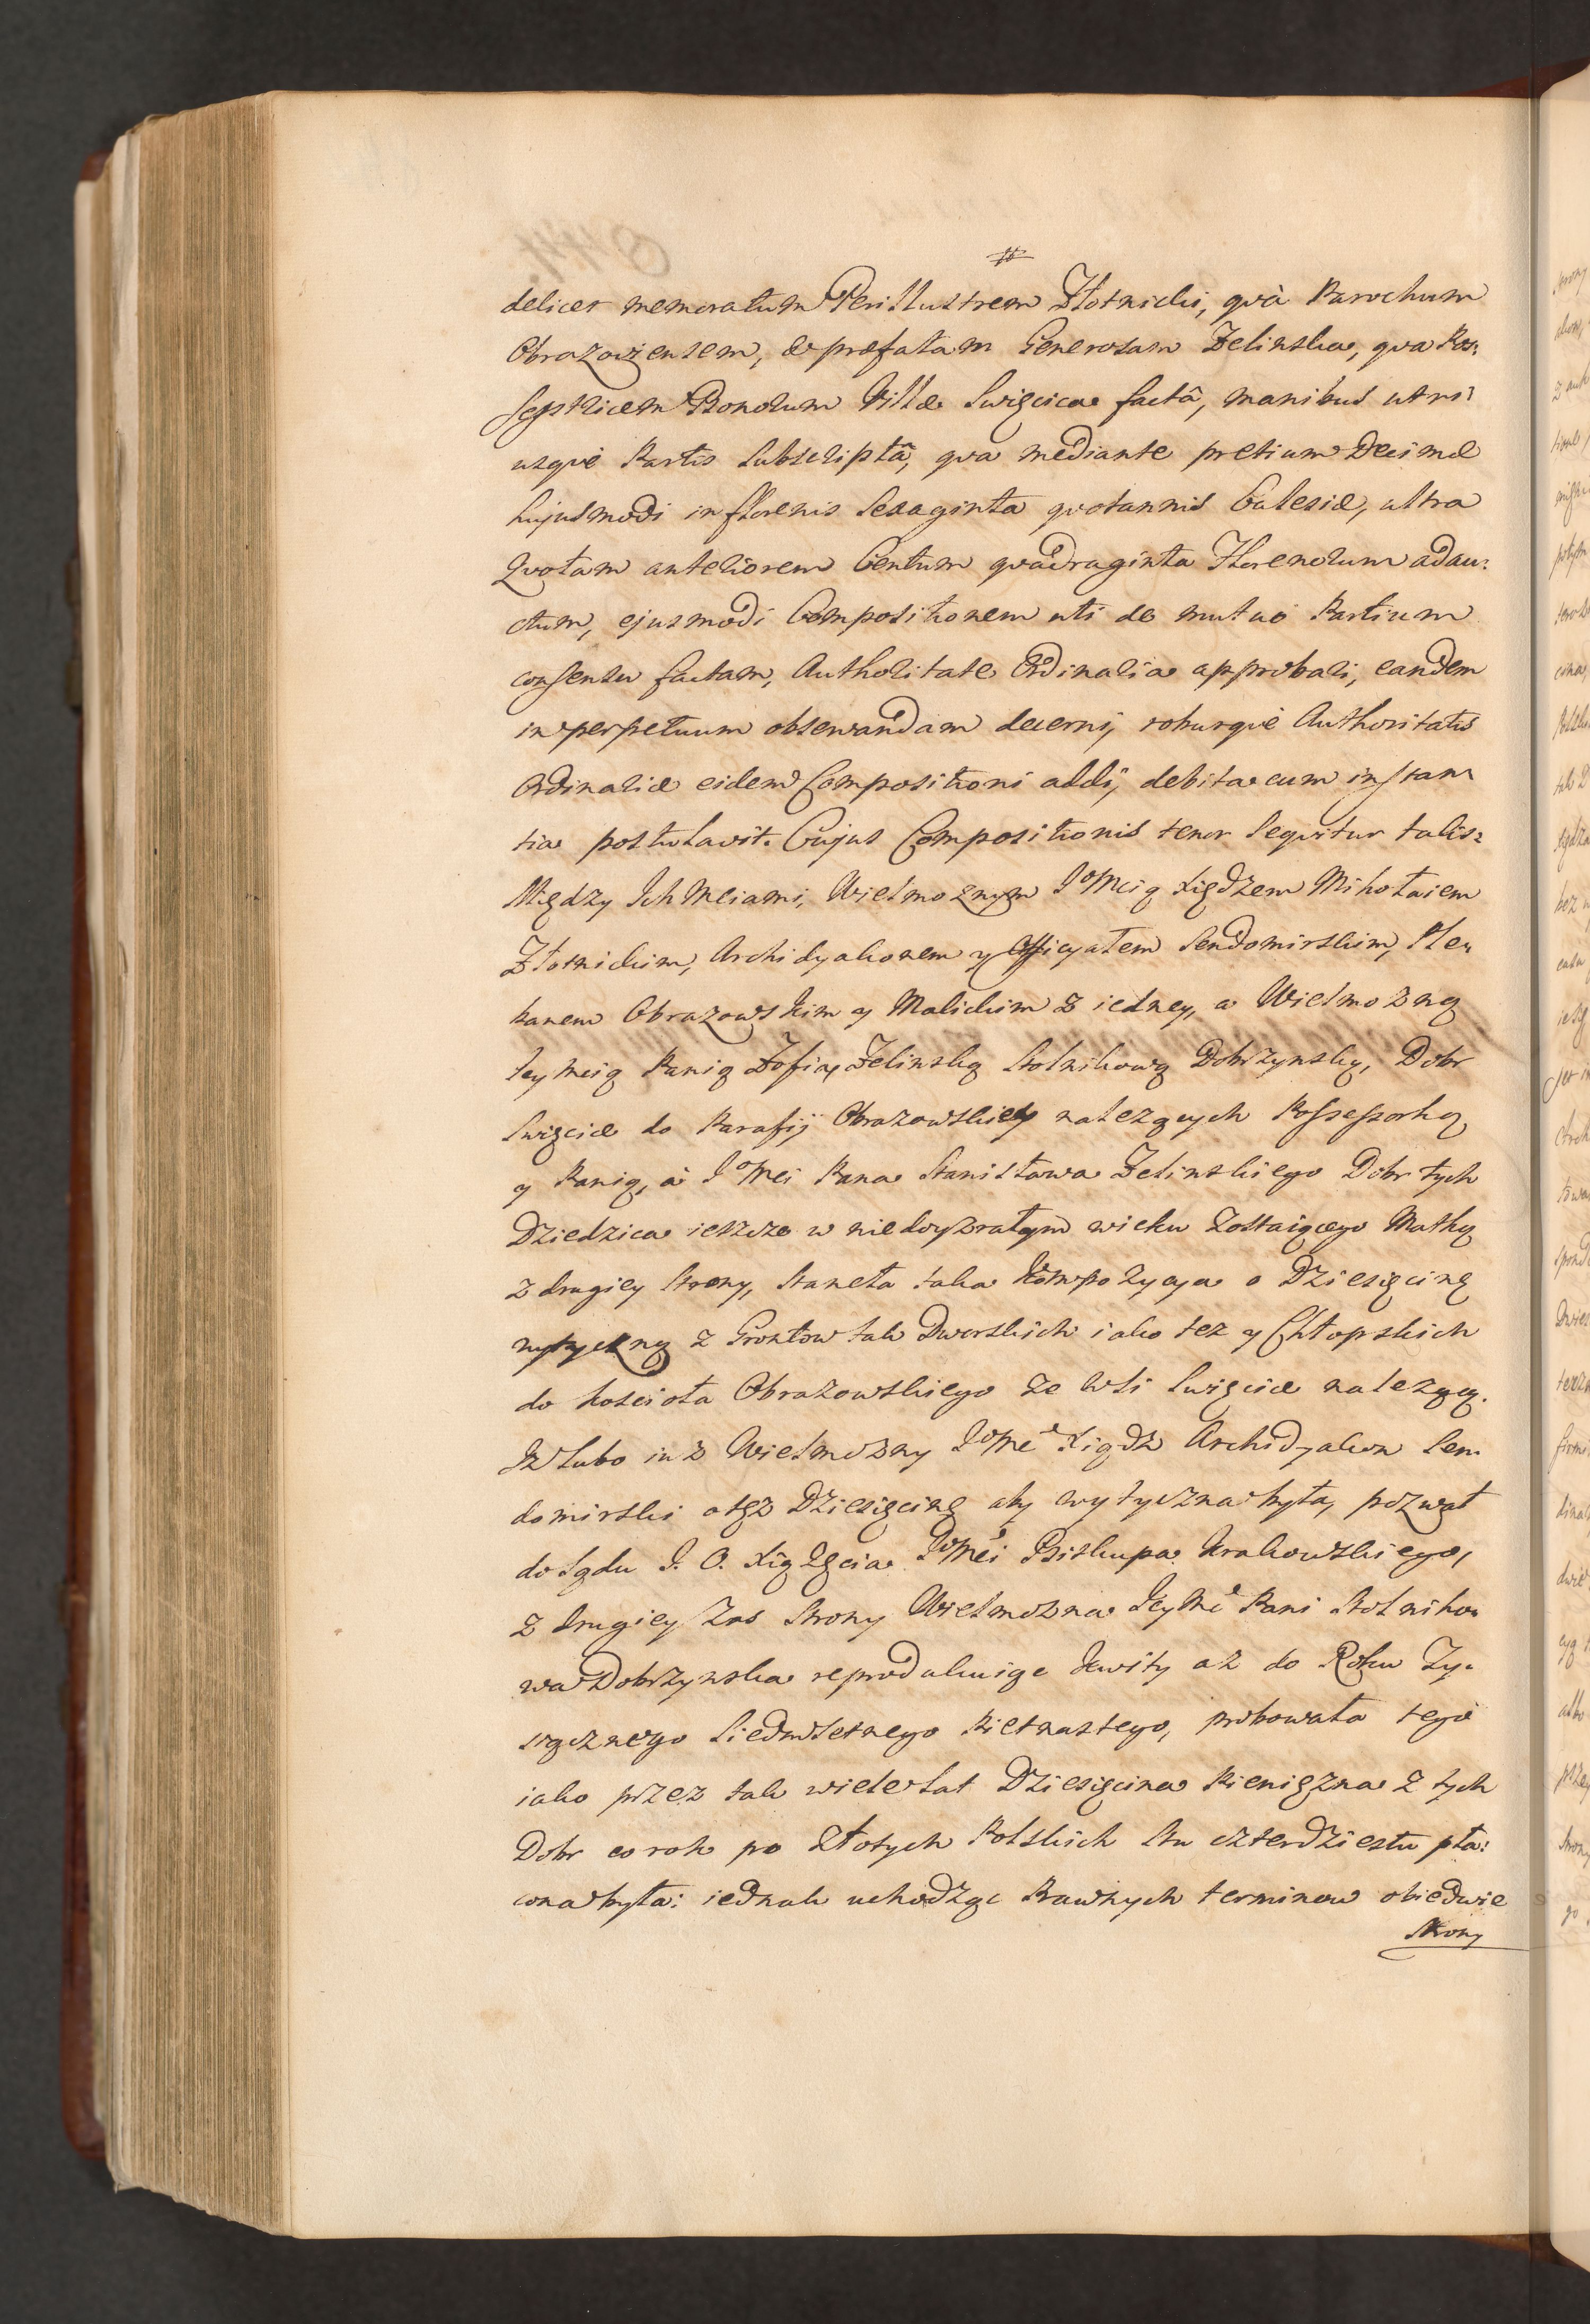 delicet memoratum Perillustrem Złotnicki, quà Parochum
Obrazoviensem, & præfatam Generosam Zelinska, qua Pos:
sessricem Bonorum Villæ Swięcica factâ, manibus utri:
usquè Partis subscriptâ, qva mediante pretium Decimæ
hujusmodi in florenis Sexaginta qvotannis Ecclesiæ, ultra
Qvotam anteriorem Centum qvadraginta Florenorum adau:
ctum, ejusmodi Compositionem uti de mutuo Partium
consensu factam, Authoritate Ordinaria approbari, eandem
in perpetuum observandam decerni, roburquè Authoritatis
Ordinariæ eidem Compositioni addi, debita cum instan:
tia postulavit. Cujus Compositionis tenor sequitur talis:
Między Ich Mciami, Wielmoznym JoMcią Xiędzem Mikołaiem
Złotnickim, Archidyakonem y Officyałem Sendomirskim, Ple:
banem Obrazowskim y Malickim z iedney, a Wielmozną
Jey Mcią Panią Zofią Zelinską Stolnikową Dobrzynską, Dobr
Swięcice do Parafij Obrazowskiey nalezących Possessorką
y Panią, à JoMci Pana Stanisława Zelinskiego Dobr tych
Dziedzica ieszcze w niedoyzrałym wieku zostaiącego Matką
z drugiey Strony, staneła taka Kompozycya o Dziesięcinę
wytyczną z Grontow tak Dworskich iako tez y Chłopskich
do Kościoła Obrazowskiego ze Wsi Swięcice nalezącą.
Iz lubo iuz Wielmozny JoMć Xiądz Archidyakon Sen:
domirski otęz Dziesięcinę aby wytyczna była, pozwał
do Sądu J. O. Xiązęcia JoMći Biskupa Krakowskiego,
z drugiey zas Strony Wielmozna JeyMć Pani Stolniko:
wa Dobrzynska reprodukuiąc Kwity az do Roku Ty:
siącznego Siedmsetnego Pietnastego, probowała tego
iako przez tak wiele Lat Dziesięcina Pienięzna z tych
Dobr co rok po Złotych Polskich Sto czterdziestu pła:
cona była: iednak uchodząc Prawnych terminow obiedwie
Strony